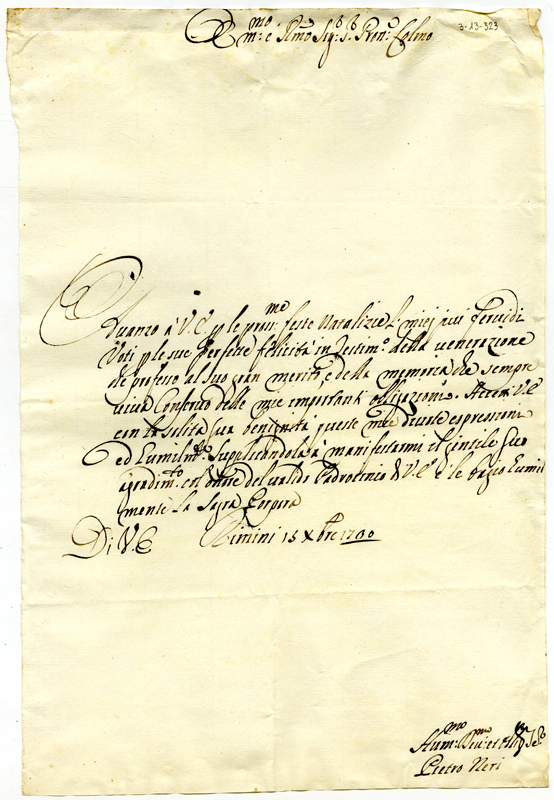 E.mo e R.mo Sig.r S.r Pron.e Col.mo
3-13-323
Avanzo à V.E. p le pross.me feste Natalizie i miei più fervidi
Voti p le sue perfette felicità in Testim.o della venerazione
che professo al suo gran merito, e della memoria che sempre
viva conservo delle mie importanti obligazioni. Accetti V.E.
con la solita sua benignità queste mie divote espressioni
ed humilm.te supplicandola à manifestarmi il gentile suo
gradim.to coll' del valido Padrocinio di V.E. le bagio humil
mente la Sagra Porpora
Di V.E. Rimini 15 Xbre 1700
Hum.mo Div.mo et Se.re
Pietro Neri